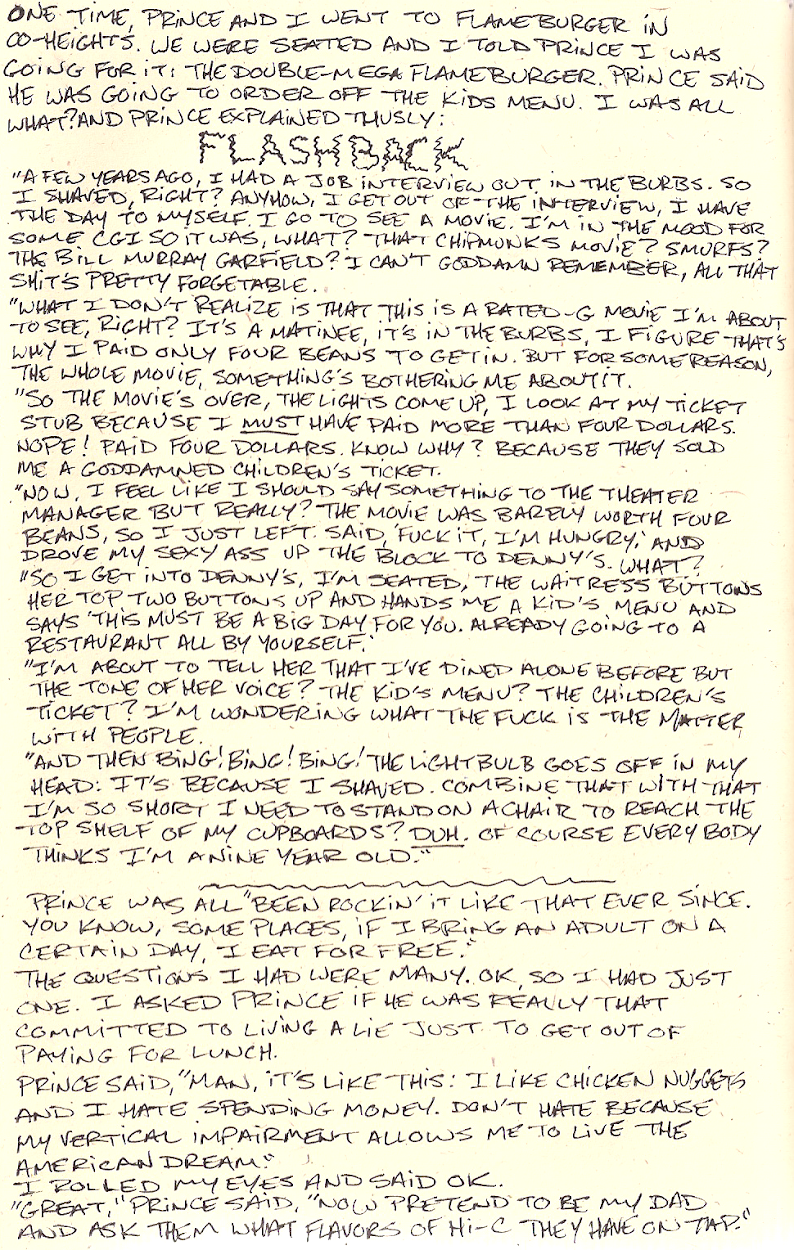 ONE TIME, PRINCE AND I WENT TO FLAMEBURGER IN
CO-HEIGHTS. WE WERE SEATED AND I TOLD PRINCE I WAS
GOING FOR IT: THE DOUBLE-MEGA FLAMEBURGER. PRINCE SAID
HE WAS GOING TO ORDER OFF THE KIDS MENU. I WAS ALL
WHAT? AND PRINCE EXPLAINED THUSLY:
FLASHBACK
"A FEW YEARS AGO, I HAD A JOB INTERVIEW OUT IN THE BURBS. SO
I SHAVED, RIGHT? ANYHOW, I GET OUT OF THE INTERVIEW, I HAVE
THE DAY TO MYSELF. I GO TO SEE A MOVIE. I'M IN THE MOOD FOR
SOME CGI SO IT WAS, WHAT? THAT CHIPMUNKS MOVIE? SMURFS?
THE BILL MURRAY GARFIELD? I CAN'T GODDAMN REMEMBER, ALL THAT
SHIT'S PRETTY FORGETABLE.
"WHAT I DON'T REALIZE IS THAT THIS IS A RATED-G MOVIE I'M ABOUT
TO SEE, RIGHT? IT'S A MATINEE, IT'S IN THE BURBS, I FIGURE THAT'S
WHY I PAID ONLY FOUR BEANS TO GET IN. BUT FOR SOME REASON,
THE WHOLE MOVIE, SOMETHING'S BOTHERING ME ABOUT IT.
"SO THE MOVIE'S OVER, THE LIGHTS COME UP, I LOOK AT MY TICKET
STUB BECAUSE I MUST HAVE PAID MORE THAN FOUR DOLLARS.
NOPE! PAID FOUR DOLLARS. KNOW WHY? BECAUSE THEY SOLD
ME A GODDAMNED CHILDREN'S TICKET.
"NOW, I FEEL LIKE I SHOULD SAY SOMETHING TO THE THEATER
MANAGER BUT REALLY? THE MOVIE WAS BARELY WORTH FOUR
BEANS, SO I JUST LEFT. SAID, 'FUCK IT, I'M HUNGRY,' AND
DROVE MY SEXY ASS UP THE BLOCK TO DENNY'S. WHAT?
"SO I GET INTO DENNY'S, I'M SEATED, THE WAITRESS BUTTONS
HER TOP TWO BUTTONS UP AND HANDS ME A KID'S MENU AND
SAYS 'THIS MUST BE A BIG DAY FOR YOU. ALREADY GOING TO A
RESTAURANT ALL BY YOURSELF.'
"I'M ABOUT TO TELL HER THAT I'VE DINED ALONE BEFORE BUT
THE TONE OF HER VOICE? THE KID'S MENU? THE CHILDREN'S
TICKET? I'M WONDERING WHAT THE FUCK IS THE MATTER
WITH PEOPLE.
"AND THEN BING! BING! BING! THE LIGHTBULB GOES OFF IN MY
HEAD: IT'S BECAUSE I SHAVED. COMBINE THAT WITH THAT
I'M SO SHORT I NEED TO STAND ON A CHAIR TO REACH THE
TOP SHELF OF MY CUPBOARDS? DUH. OF COURSE EVERYBODY
THINKS I'M A NINE YEAR OLD."
PRINCE WAS ALL "BEEN ROCKIN' IT LIKE THAT EVER SINCE.
YOU KNOW, SOME PLACES, IF I BRING AN ADULT ON A
CERTAIN DAY, I EAT FOR FREE."
THE QUESTIONS I HAD WERE MANY. OK, SO I HAD JUST
ONE. I ASKED PRINCE IF HE WAS REALLY THAT
COMMITTED TO LIVING A LIE JUST TO GET OUT OF
PAYING FOR LUNCH.
PRINCE SAID, "MAN, IT'S LIKE THIS: I LIKE CHICKEN NUGGETS
AND I HATE SPENDING MONEY. DON'T HATE BECAUSE
MY VERTICAL IMPAIRMENT ALLOWS ME TO LIVE THE
AMERICAN DREAM."
I ROLLED MY EYES AND SAID OK.
"GREAT," PRINCE SAID, "NOW PRETEND TO BE MY DAD
AND ASK THEM WHAT FLAVORS OF HI-C THEY HAVE ON TAP."